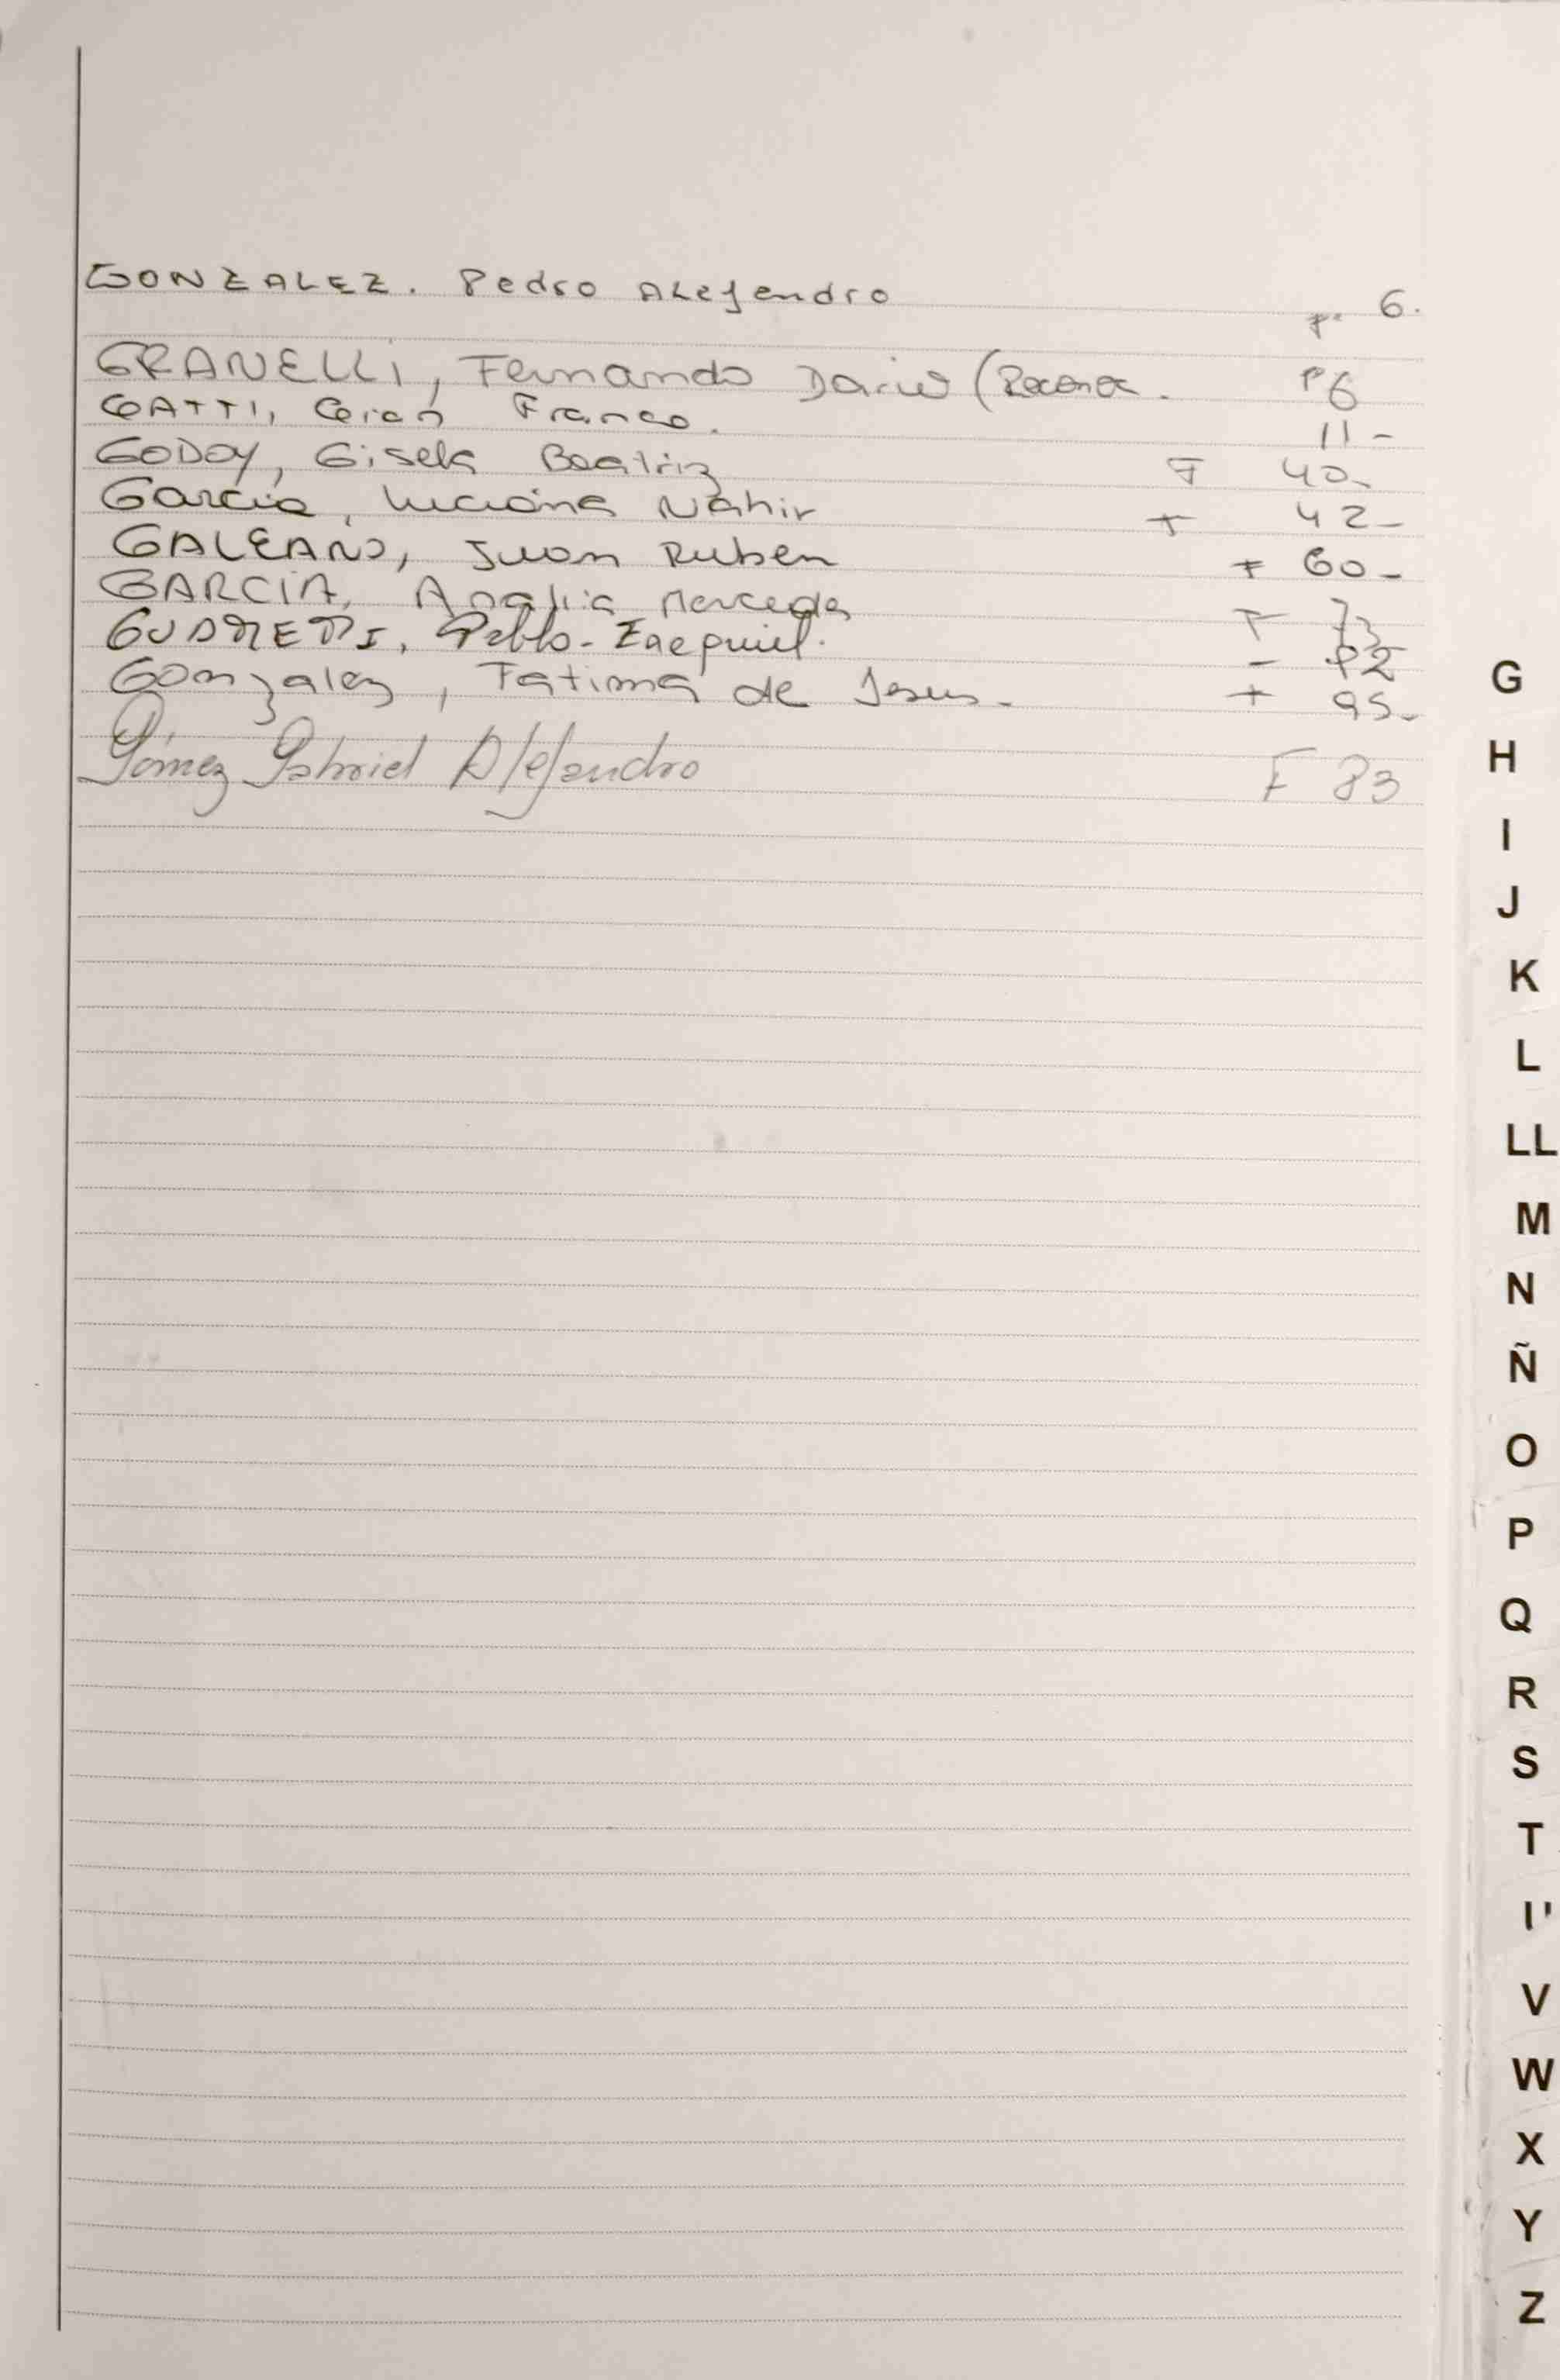 GONZALEZ. Pedro Alejandro F° 6.
GRANELLI, Fernando Dario (Reconoc. F° 6
GATTI, Gian Franco. 11-
GODOY, Gisela Beatriz F 40-
Garcia, Luciana Nahir F 42-
GALEANO, Juan Ruben F 60-
GARCIA, Analia Mercedes F 73
Pablo-Ezequiel. - 82
Gonzalez, Fatima de Jesus- F 95-
Gómez Gabriel Alejandro F 83
G
H
I
J
K
L
LL
M
N
Ñ
O
P
Q
R
S
T
V
W
X
Y
Z